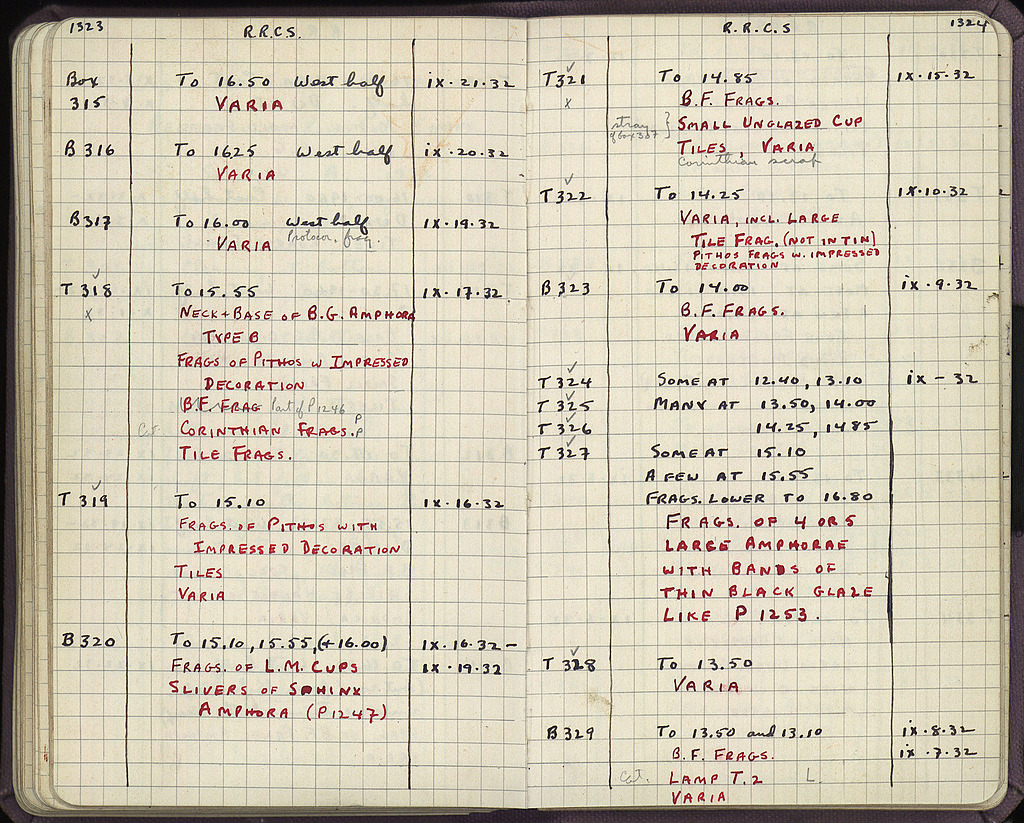 1323
R.R.C.S.
Box To 16.50 West half ix.21.32
315 VARIA
B 316 To 1625 West half ix.20.32
VARIA
B 317 To 16.00 West half IX.19.32
VARIA Protocor. frag.
✓
T 318 To 15.55 IX.17.32
X NECK + BASE OF B.G. AMPHORA
TYPE B
FRAGS OF PITHOS W IMPRESSED
DECORATION
B.F. FRAG Part of P 1246
Cat. CORINTHIAN FRAGS. P P
TILE FRAGS.
✓
T 319 To 15.10 IX.16.32
FRAGS. OF PITHOS WITH
IMPRESSED DECORATION
TILES
VARIA
B 320 To 15.10, 15.55, (+ 16.00) IX.16.32 –
FRAGS. OF L.M. CUPS IX.19.32
SLIVERS OF SPHINX
AMPHORA (P 1247)
R.R.C.S
1324
✓
T 321 To 14.85 IX.15.32
X B.F. FRAGS.
stray } SMALL UNGLAZED CUP
TILES, VARIA
Corinthian scrap
✓
T 322 To 14.25 IX.10.32
VARIA, INCL. LARGE
TILE FRAG. (NOT IN TIN)
PITHOS FRAGS W. IMPRESSED
DECORATION
B 323 To 14.00 ix.9.32
B.F. FRAGS.
VARIA
✓
T 324 SOME AT 12.40, 13.10 ix – 32
✓
T 325 MANY AT 13.50, 14.00
✓
T 326 14.25, 1485
✓
T 327 SOME AT 15.10
A FEW AT 15.55
FRAGS. LOWER TO 16.80
FRAGS. OF 4 OR 5
LARGE AMPHORAE
WITH BANDS OF
THIN BLACK GLAZE
LIKE P 1253.
✓
T 328 To 13.50
VARIA
B 329 To 13.50 and 13.10 ix.8.32
B.F. FRAGS. ix.7.32
Cat. LAMP T.2 L.
VARIA